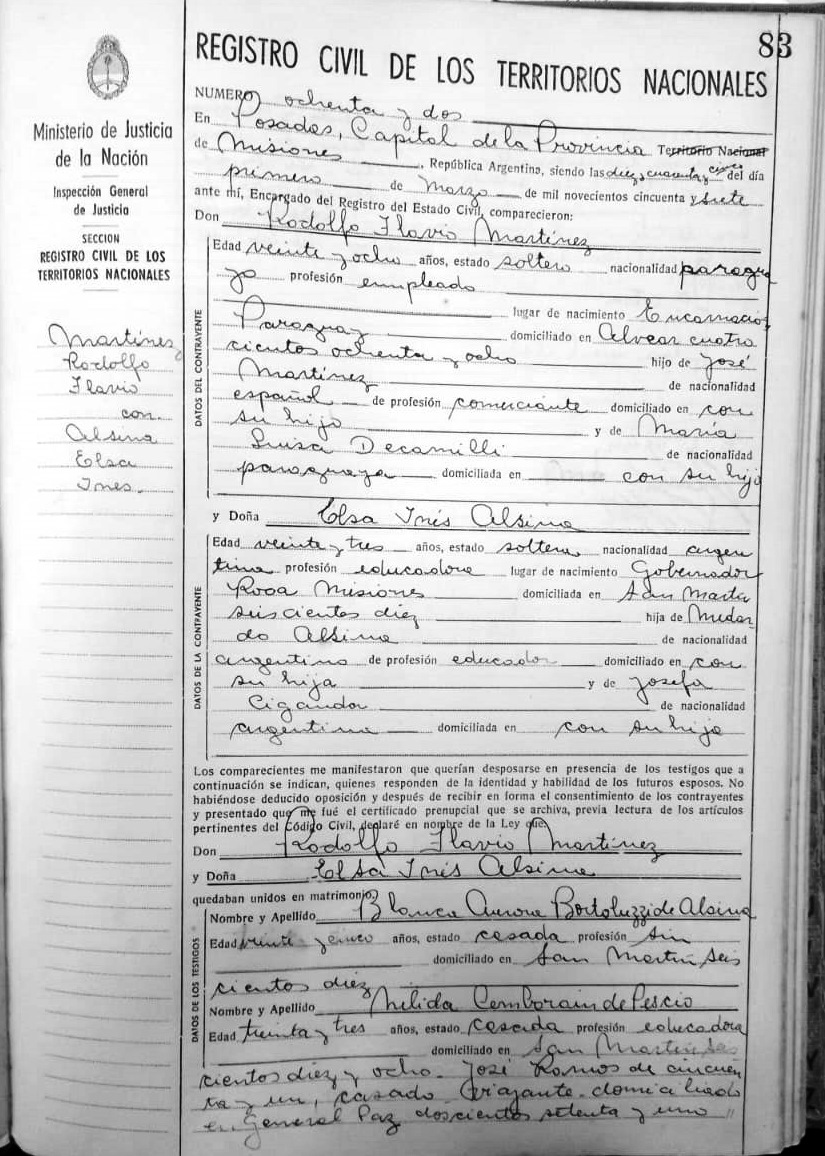 83
REGISTRO CIVIL DE LOS TERRITORIOS NACIONALES
Ministerio de Justicia
de la Nación
Inspección General
de Justicia
SECCION
REGISTRO CIVIL DE LOS
TERRITORIOS NACIONALES
Martínez
Rodolfo
Flavio
con
Alsina
Elsa
Ines.
NUMERO ochenta y dos
En Posadas, Capital de la Provincia Territorio Nacional
de Misiones, República Argentina, siendo las diez, cuarenta y cinco del día
primero de Marzo de mil novecientos cincuenta y siete
ante mí, Encargado del Registro del Estado Civil, comparecieron:
Don Rodolfo Flavio Martínez
DATOS DEL CONTRAYENTE
Edad veinte y ocho años, estado soltero nacionalidad paragua
yo profesión empleado
lugar de nacimiento Encarnación
Paraguay domiciliado en Alvear cuatro
cientos ochenta y ocho hijo de José
Martínez de nacionalidad
español de profesión comerciante domiciliado en con
su hijo y de María
Luisa Decamilli de nacionalidad
paraguaya domiciliada en con su hijo
y Doña Elsa Inés Alsina
DATOS DE LA CONTRAYENTE
Edad veinte y tres años, estado soltera nacionalidad argen
tina profesión educadora lugar de nacimiento Gobernador
Roca Misiones domiciliada en San Martín
seiscientos diez hija de Medar
do Alsina de nacionalidad
argentino de profesión educador domiciliado en con
su hija y de Josefa
Cigandor de nacionalidad
argentina domiciliada en con su hija
Los comparecientes me manifestaron que querían desposarse en presencia de los testigos que a
continuación se indican, quienes responden de la identidad y habilidad de los futuros esposos. No
habiéndose deducido oposición y después de recibir en forma el consentimiento de los contrayentes
y presentado que me fué el certificado prenupcial que se archiva, previa lectura de los artículos
pertinentes del Código Civil, declaré en nombre de la Ley que:
Don Rodolfo Flavio Martínez
y Doña Elsa Inés Alsina
quedaban unidos en matrimonio.
DATOS DE LOS TESTIGOS
Nombre y Apellido Blanca Aurora Bortoluzzi de Alsina
Edad veinte y cinco años, estado casada profesión sin
domiciliado en San Martín seis
cientos diez
Nombre y Apellido Nélida Cemborain de Pescio
Edad treinta y tres años, estado casada profesión educadora
domiciliado en San Martín seis
cientos diez y ocho. José Ramos de cincuen
ta y un, casado viajante domiciliado
en General Paz doscientos setenta y uno "